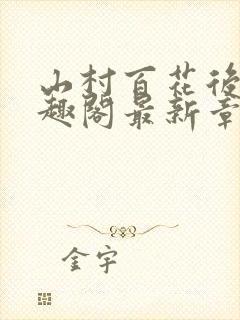 山村百花後
趣閣最新章
金宇